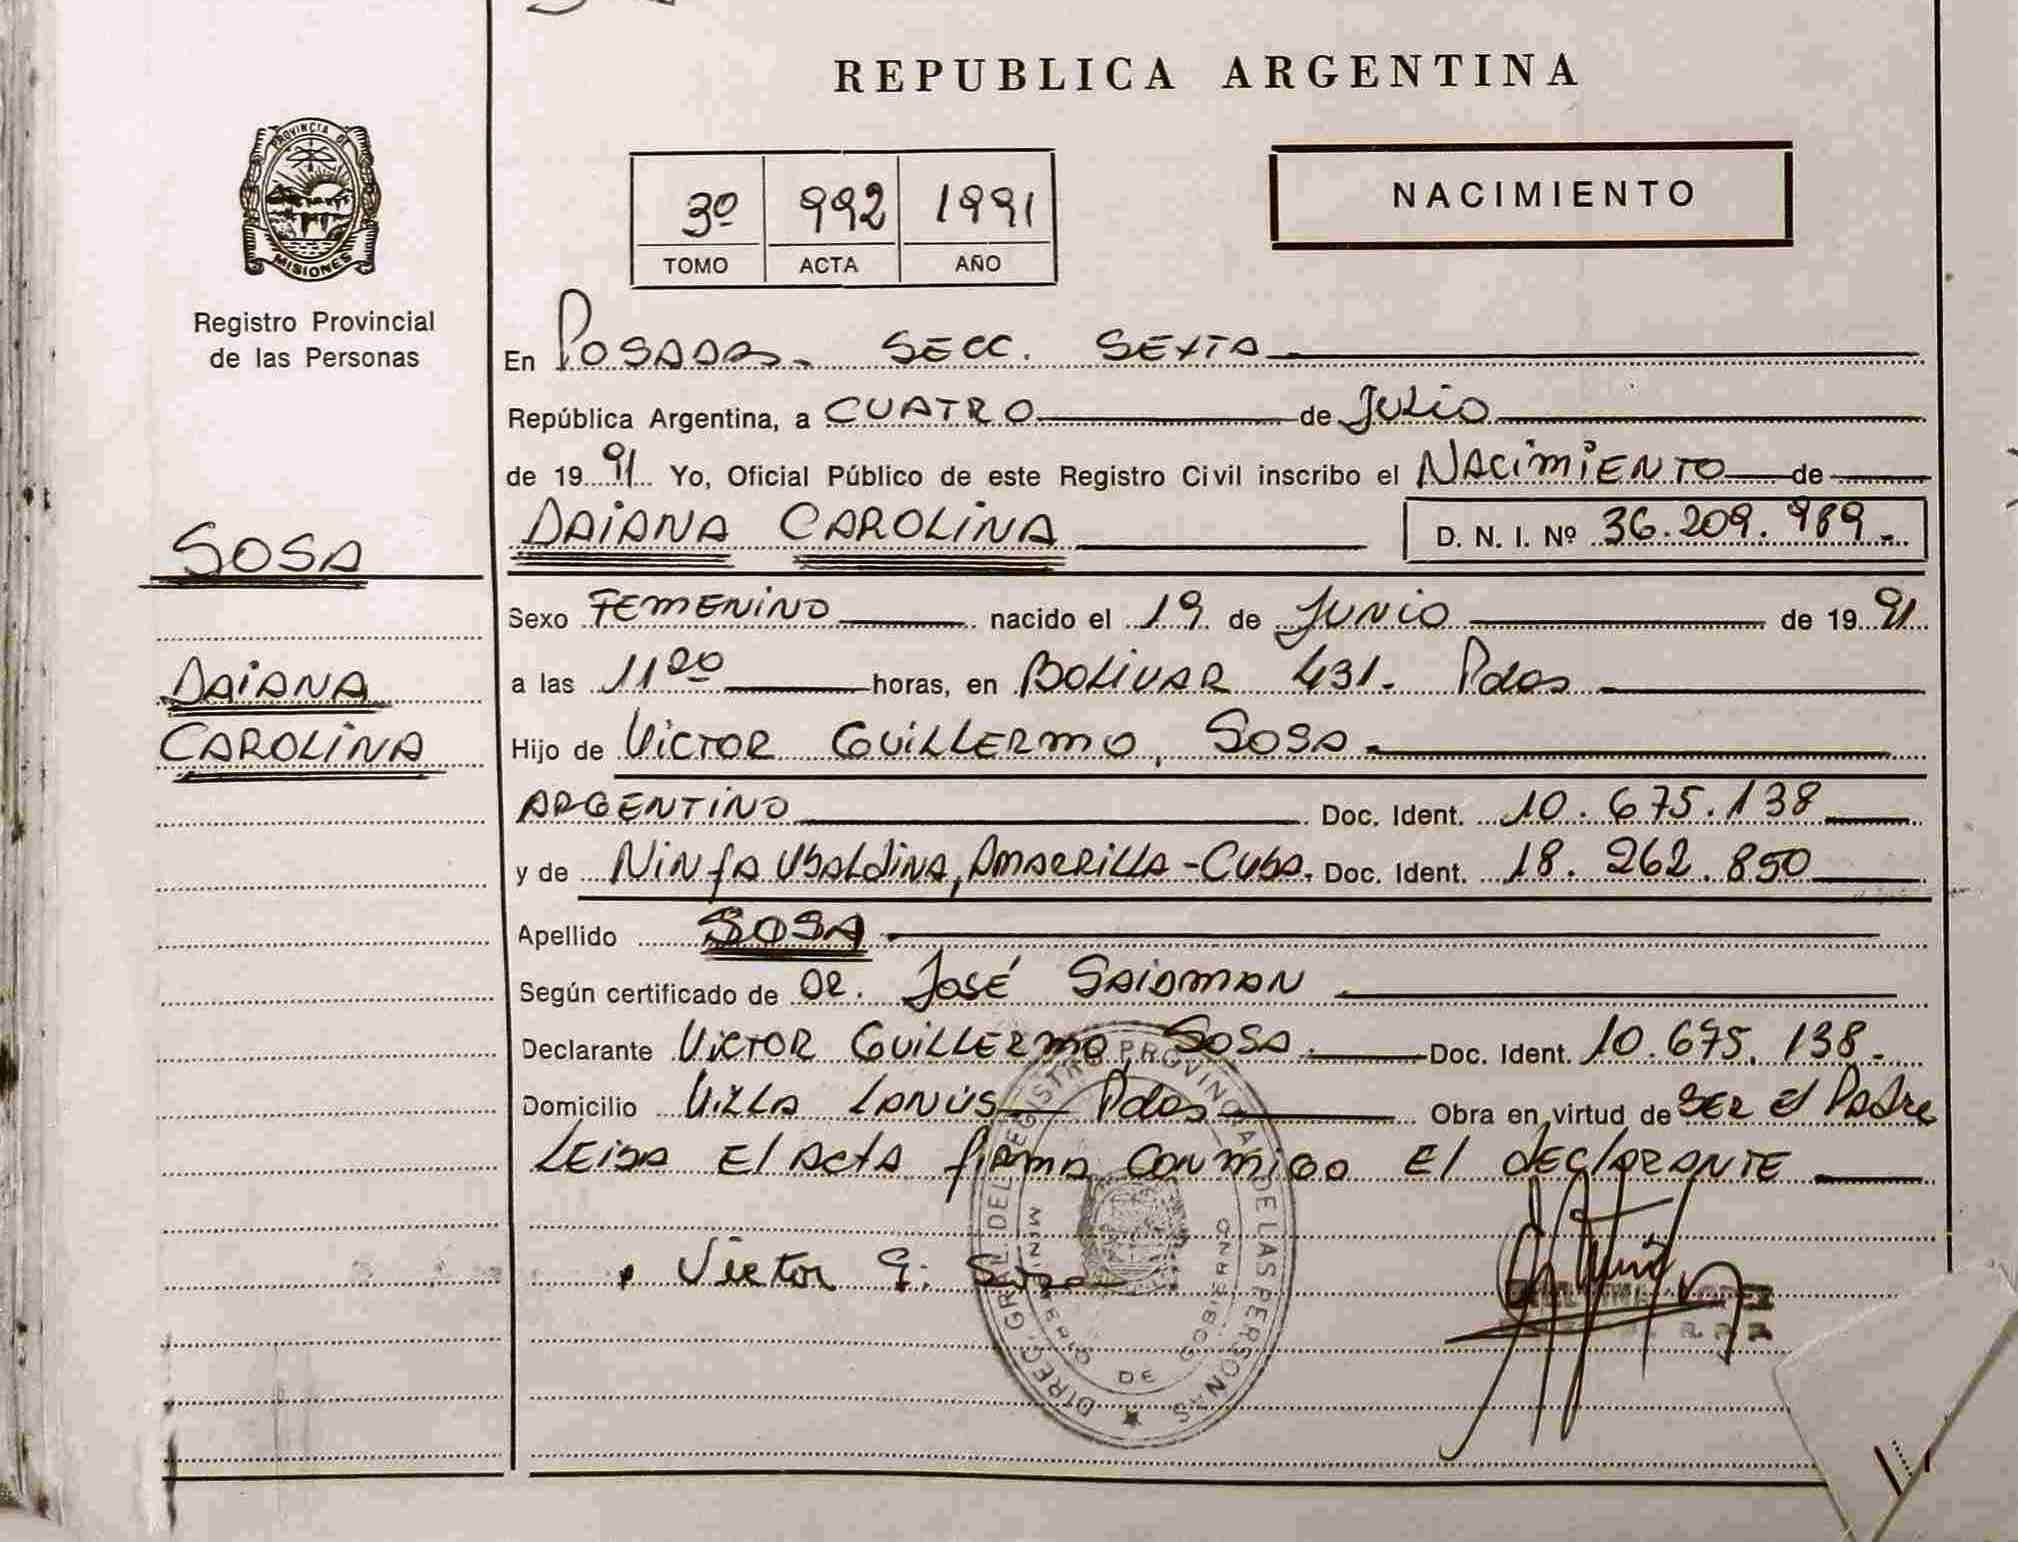 REPUBLICA ARGENTINA
PROVINCIA DE
MISIONES
Registro Provincial
de las Personas
3º 992 1991
TOMO ACTA AÑO
NACIMIENTO
En POSADAS. SECC. SEXTA
República Argentina, a CUATRO de JULIO
de 1991 Yo, Oficial Público de este Registro Civil inscribo el NACIMIENTO de
DAIANA CAROLINA D. N. I. Nº 36.209.989.-
SOSA
DAIANA
CAROLINA
Sexo FEMENINO nacido el 19 de JUNIO de 1991
a las 11 20 horas, en BOLIVAR 431. Pdas
Hijo de VICTOR GUILLERMO, SOSA
ARGENTINO Doc. Ident. 10.675.138
y de NINFA UBALDINA, AMARRILLA - Doc. Ident. 18.262.850
Apellido SOSA
Según certificado de DR. JOSÉ SAIDMAN
Declarante VICTOR GUILLERMO, SOSA Doc. Ident. 10.675.138.-
Domicilio VILLA LANÚS Pdas Obra en virtud de SER El Padre
LEIDA El ACTA fIRMA CONMIGO El dEClARANTE
Victor G. Sosa
DIREC. GRAL. DEL REGISTRO PROVINCIAL DE LAS PERSONAS
MINISTERIO DE GOBIERNO